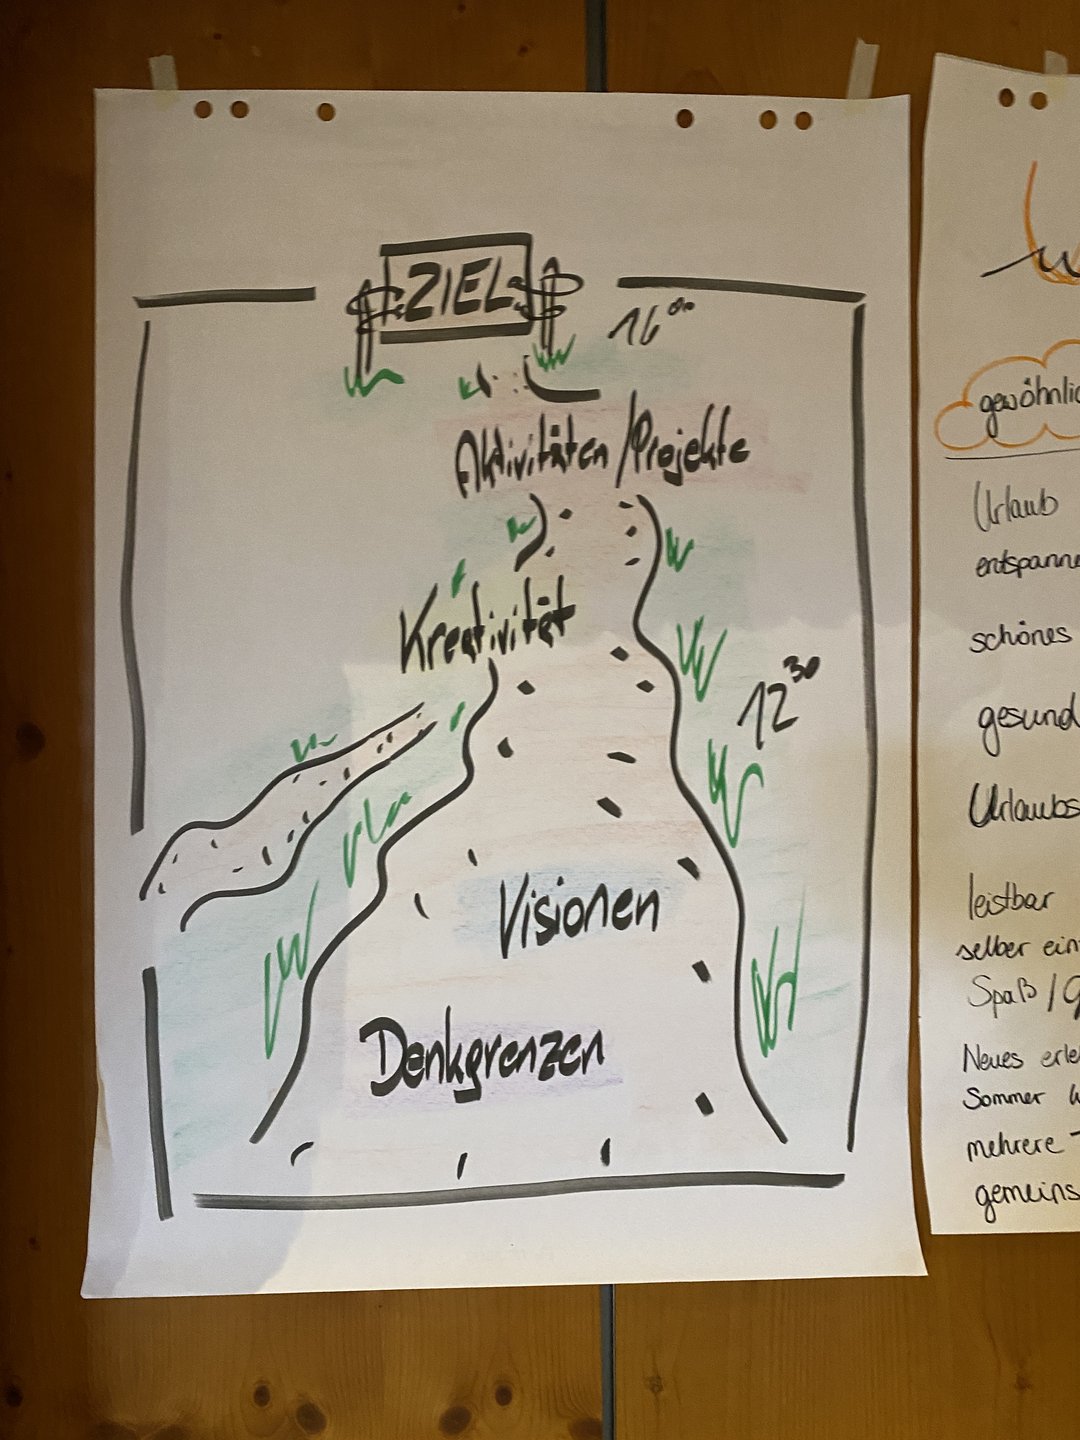 ZIEL
16⁰⁰
Aktivitäten/Projekte
Kreativität
12³⁰
Visionen
Denkgrenzen
gewöhnlic
Urlaub
entspanne
schönes
gesund
Urlaubs
leistbar
selber ein
Spaß/
Neues erle
Sommer
mehrere
gemeins